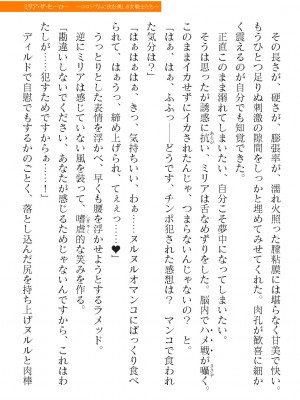 ミリア・ザ・ヒーロー
その長さが、硬さが、膨張率が、濡れ火照った膣粘膜には堪らなく甘美で快い。
もうひとつ足りぬ刺激の隙間をしっかと埋めてみせてくれた。肉孔が歓喜に細か
く震えるのが自分でも知覚できた。
正直このまま溺れてしまいたい、自分こそ夢中になってしまいたい。
そうは思ったが誘惑に抗い、ミリアは舌なめずりをした。脳内でハメ戦が囁く。
このままイカせずにイカされたんじゃ、つまらないんじゃないの？　と。
「はぁ、はぁ、ふふっ――どうです、チンポ犯された感想は？　マンコで食われ
た気分は？」
「はぁはぁはぁ、きっ、気持ちいい、わぁ……ヌルヌルオマンコにぱっくり食べ
られて、はぁうっ、締め上げられ、てぇぇっ……♥」
うっとりとした表情を浮かべ、早くも腰を浮かせようとするラメッド。
逆にミリアは感じていない風を装って、嗜虐的な笑みを作る。
「勘違いしないでください、あなたが感じるためじゃないんですから、これはわ
たしが……犯すためですからぁ――！」
ディルドで自慰でもするかのごとく、落とし込んだ尻を持ち上げヌルルと肉棒